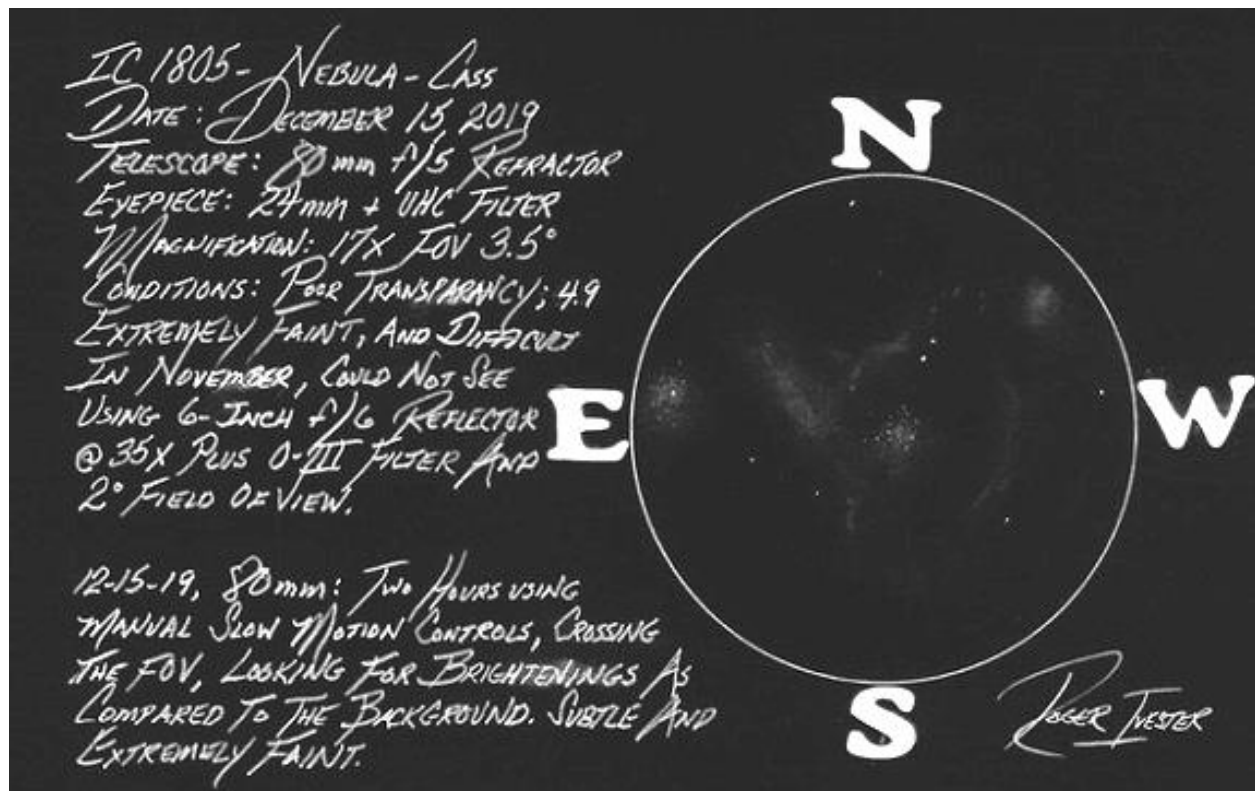 IC 1805 - NEBULA - CASS
DATE: DECEMBER 15, 2019
TELESCOPE: 80mm f/5 REFRACTOR
EYEPIECE: 24mm + UHC FILTER
MAGNIFICATION: 17X FOV 3.5°
CONDITIONS: POOR TRANSPARANCY; 4.9
EXTREMELY FAINT, AND DIFFICULT
IN NOVEMBER, COULD NOT SEE
USING 6-INCH f/6 REFLECTOR
@ 35X PLUS O-III FILTER AND
2° FIELD OF VIEW.
12-15-19, 80mm: TWO HOURS USING
MANUAL SLOW MOTION CONTROLS, CROSSING
THE FOV, LOOKING FOR BRIGHTENINGS AS
COMPARED TO THE BACKGROUND. SUBTLE AND
EXTREMELY FAINT.
N
E
W
S
ROGER IVESTER